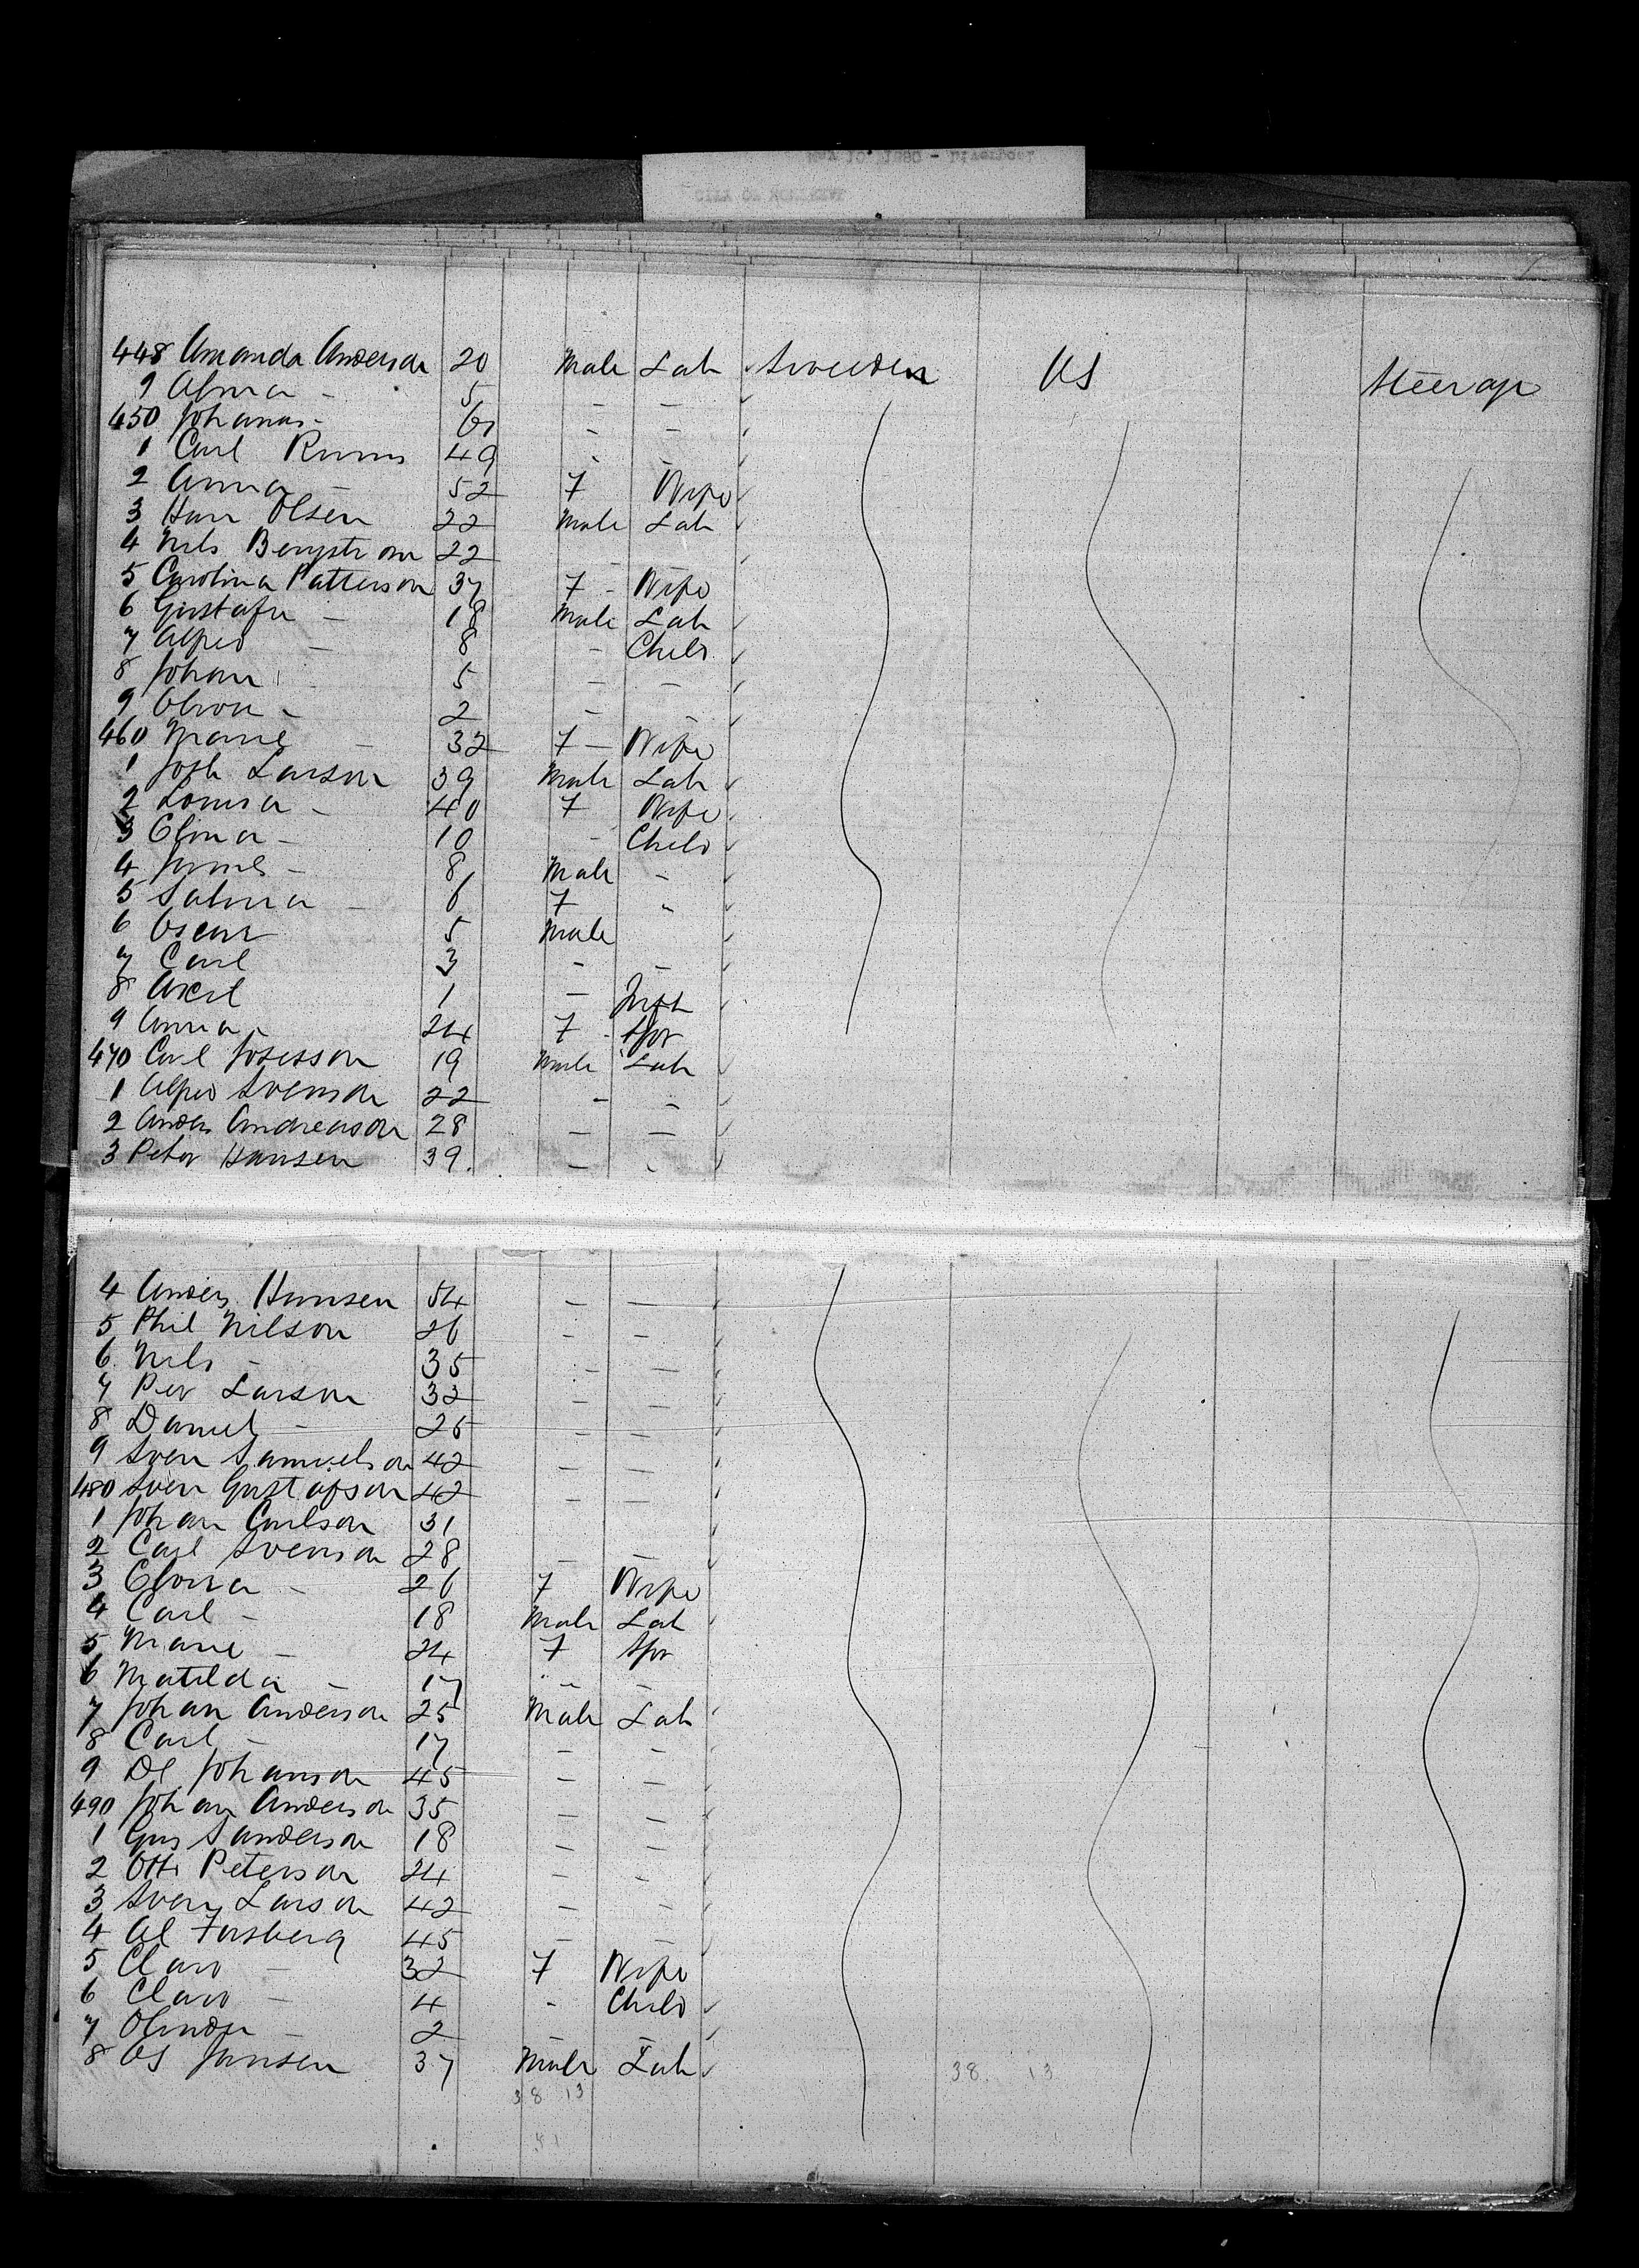 448 Amanda Anderson 20 Male Lab Sweeden US Steerage
9 Alma - 5 - -
450 Johanas - - -
1 Carl 49 - -
2 Anna - 52 F Wife
3 Han Olsen 22 Male Lab
4 Nils Bengstrom 22 - -
5 Carolina Patterson 37 F - Wife
6 Gustafu - 18 Male Lab
7 Alfred - 8 - Child
8 Johan - 5 - -
9 - 2 - -
460 Marie - 32 F - Wife
1 Josh Larson 39 Male Lab
2 Louisa - 40 F Wife
3 Elina - 10 - Child
4 - 8 Male -
5 Salma - 6 F "
6 Oscar 5 Male
7 Carl 3 - -
8 Axel 1 - Inft
9 Anna - 24 F - Spr
470 Carl Josesson 19 Male Lab
1 Alfred Svenson 22 - -
2 Anders Andreason 28 - -
3 Peter Hansen 39. - -
4 Anders Hansen 54 - -
5 Phil Nilson 26 - -
6 Nils - 35 - -
7 Per Larson 32 - -
8 Daniel - 25 - -
9 Sven Samuelson 42 - -
480 Sven Gustafson 42 - -
1 Johan Carlson 31
2 Carl Svenson 28 - -
3 - 26 F Wife
4 Carl - 18 Male Lab
5 Marie - 24 F Spr
6 Matilda - 17 " -
7 Johan Anderson 25 Male Lab
8 Carl - 17 - -
9 Johanson 45 - -
490 Johan Anderson 35 - -
1 Gus Sanderson 18 - -
2 Otto Peterson 24 - -
3 Sven Larson 42 - -
4 Al Forsberg 45 - -
5 Clara - 32 F Wife
6 Clara - 4 - Child
7 - 2 - -
8 Jansen 37 Male Lab
38 13 38. 13